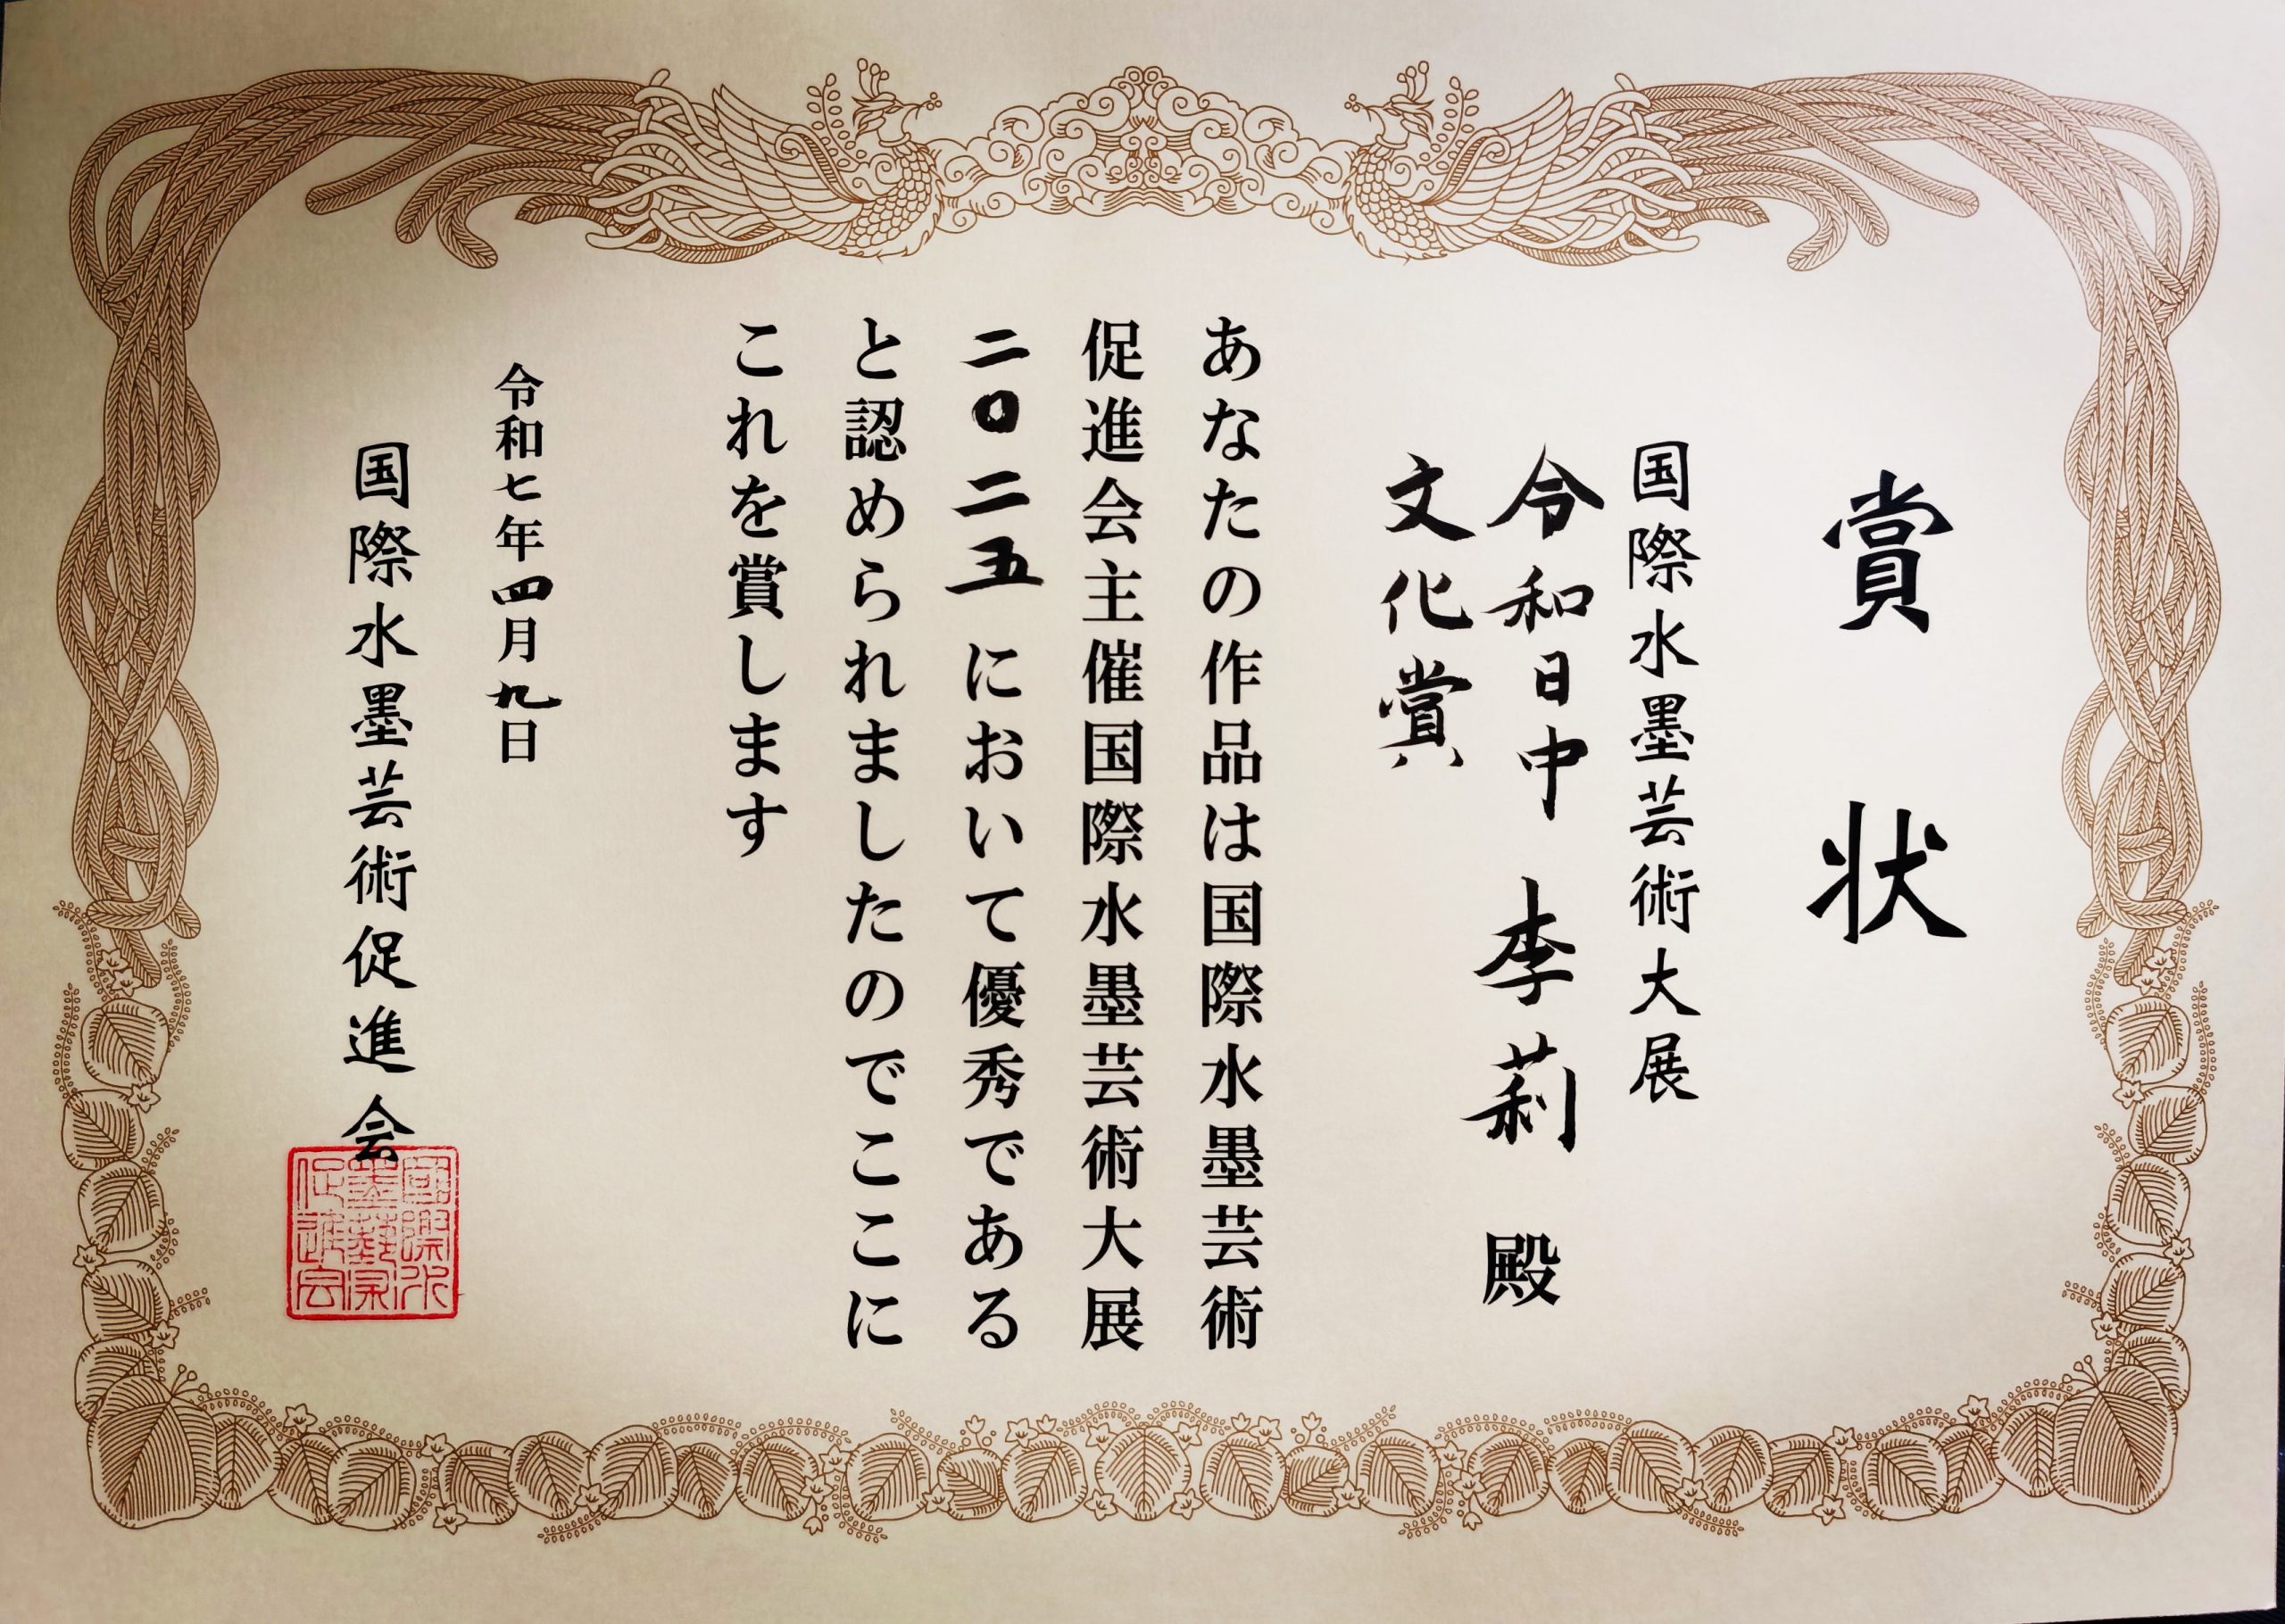 賞状
国際水墨芸術大展
令和日中
文化賞
李莉 殿
あなたの作品は国際水墨芸術
促進会主催国際水墨芸術大展
二〇二五において優秀である
と認められましたのでここに
これを賞します
令和七年四月九日
国際水墨芸術促進会